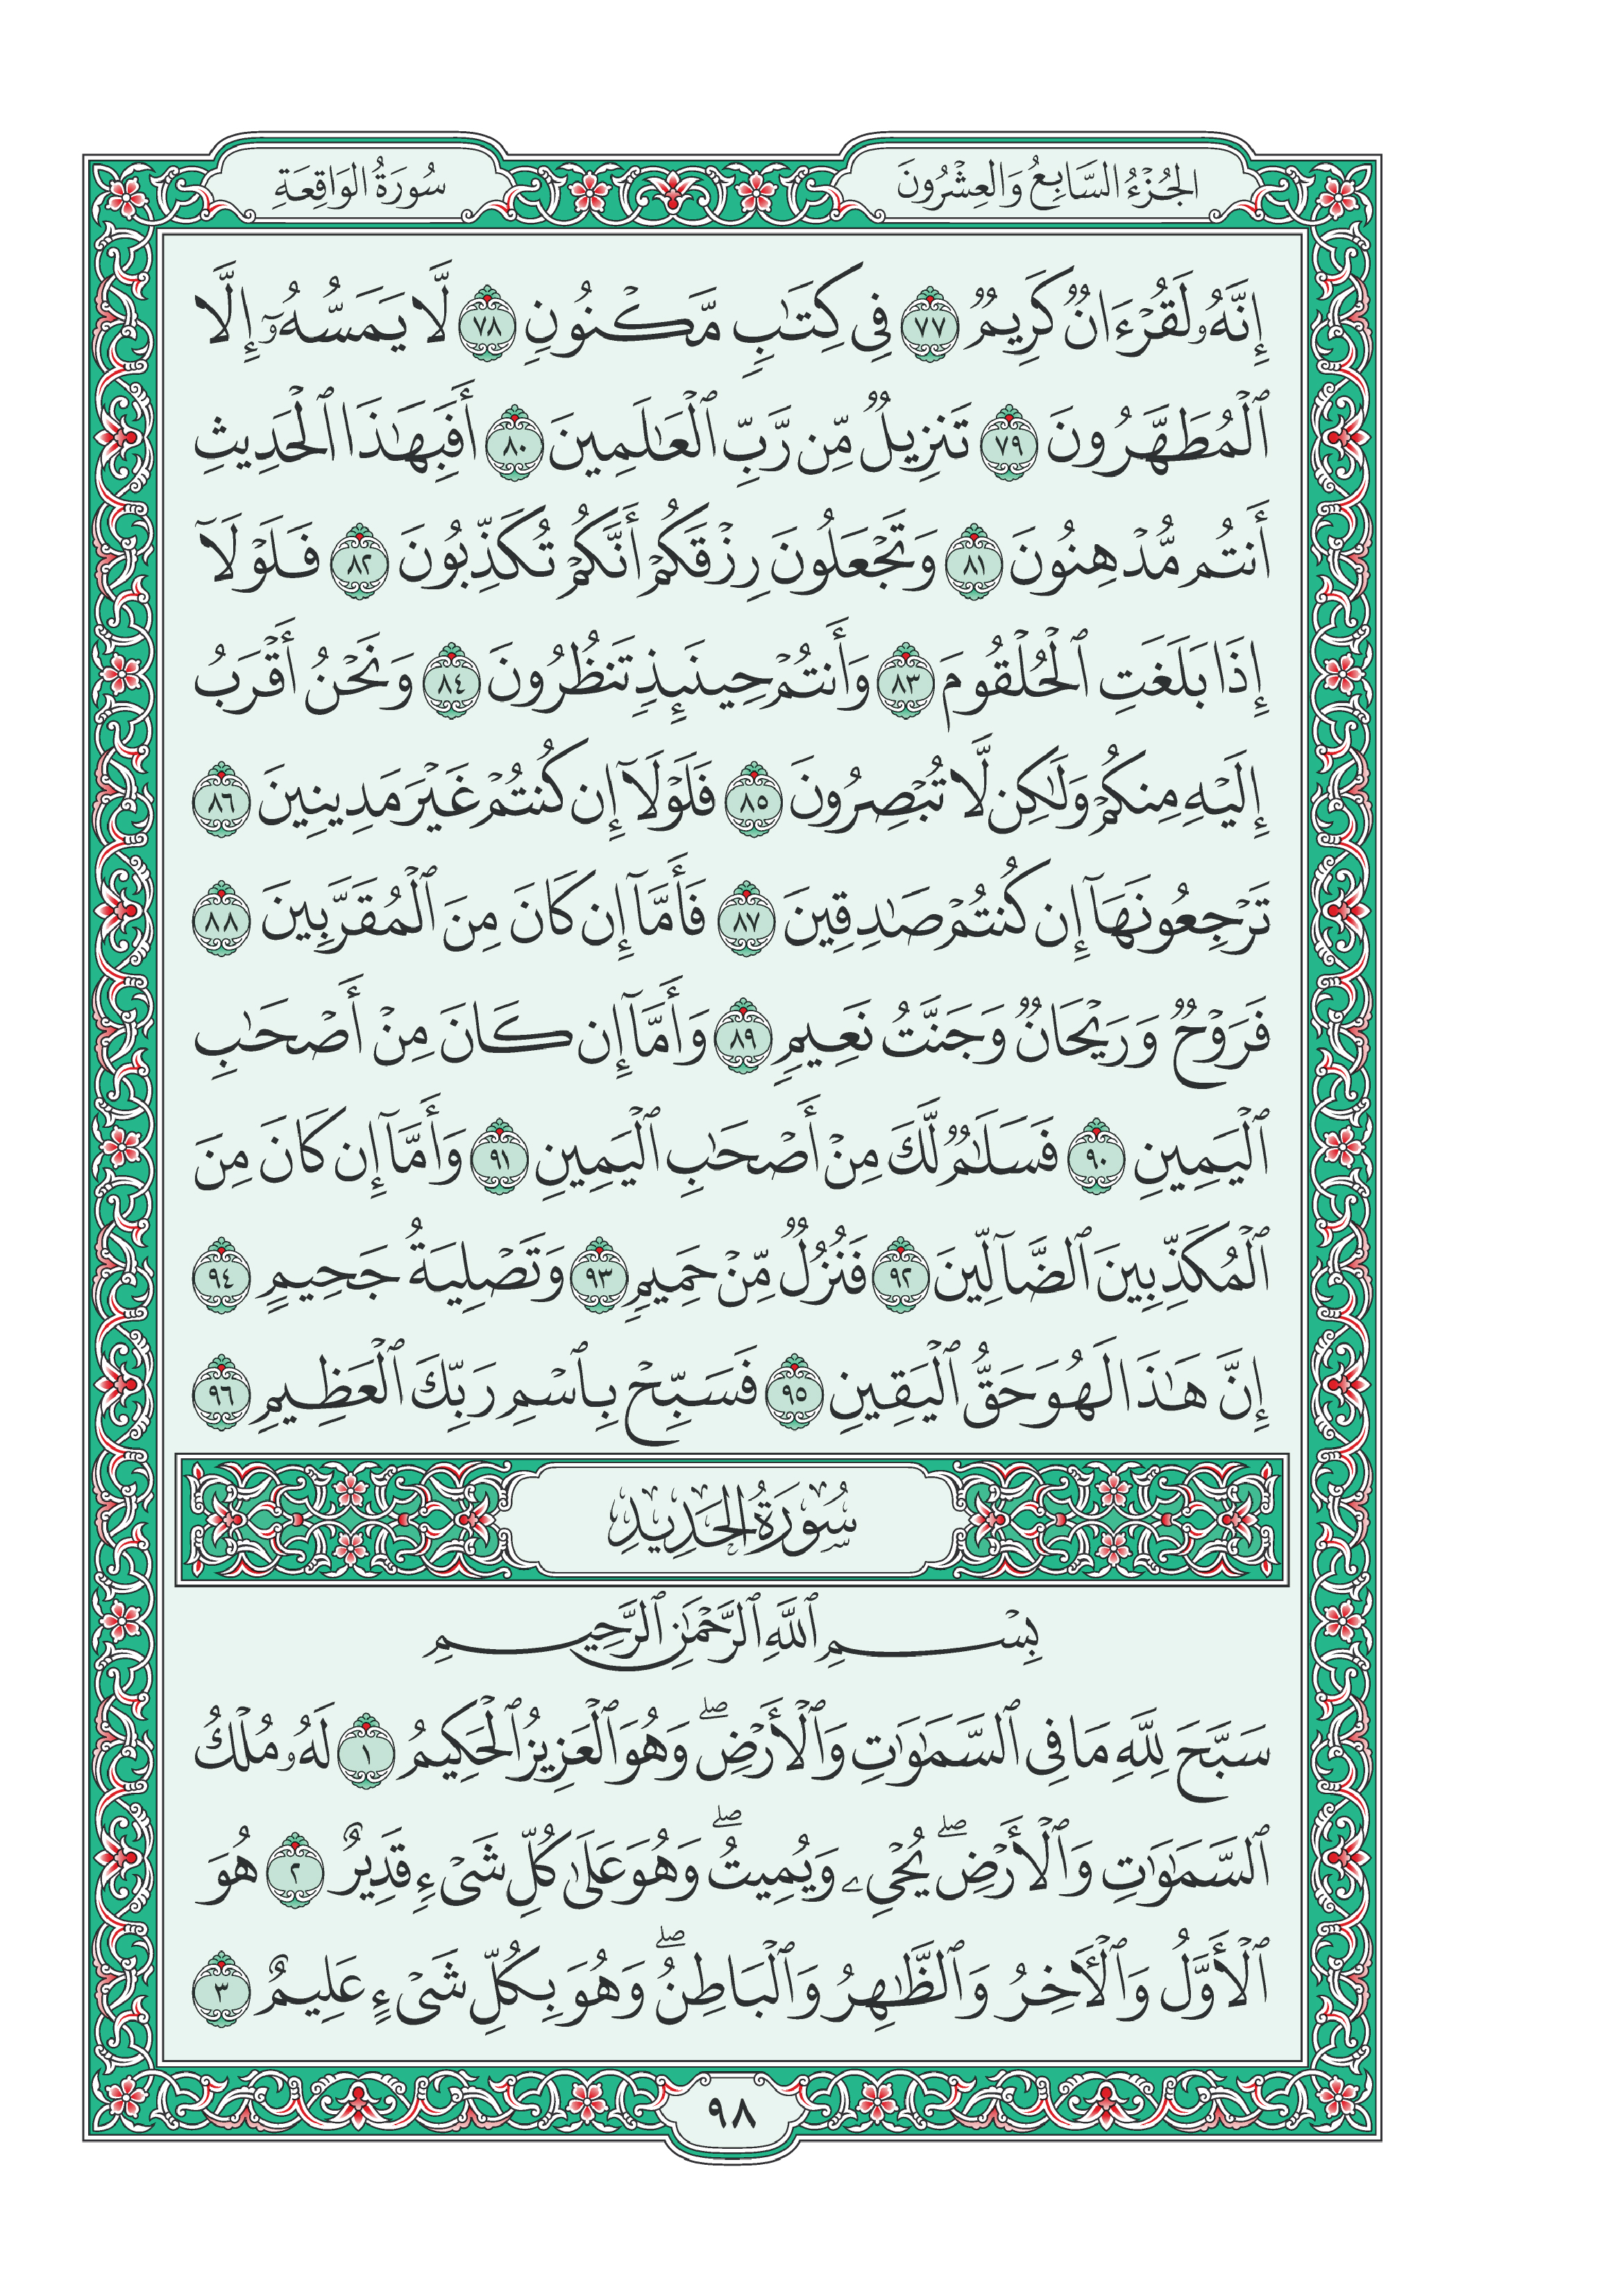 الجُزْءُ السَّابِعُ وَالعِشْرُونَ
سُورَةُ الوَاقِعَةِ
إِنَّهُۥ لَقُرْءَانٌ كَرِيمٌ ٧٧ فِى كِتَٰبٍ مَّكْنُونٍ ٧٨ لَّا يَمَسُّهُۥٓ إِلَّا
ٱلْمُطَهَّرُونَ ٧٩ تَنزِيلٌ مِّن رَّبِّ ٱلْعَٰلَمِينَ ٨٠ أَفَبِهَٰذَا ٱلْحَدِيثِ
أَنتُم مُّدْهِنُونَ ٨١ وَتَجْعَلُونَ رِزْقَكُمْ أَنَّكُمْ تُكَذِّبُونَ ٨٢ فَلَوْلَآ
إِذَا بَلَغَتِ ٱلْحُلْقُومَ ٨٣ وَأَنتُمْ حِينَئِذٍ تَنظُرُونَ ٨٤ وَنَحْنُ أَقْرَبُ
إِلَيْهِ مِنكُمْ وَلَٰكِن لَّا تُبْصِرُونَ ٨٥ فَلَوْلَآ إِن كُنتُمْ غَيْرَ مَدِينِينَ ٨٦
تَرْجِعُونَهَآ إِن كُنتُمْ صَٰدِقِينَ ٨٧ فَأَمَّآ إِن كَانَ مِنَ ٱلْمُقَرَّبِينَ ٨٨
فَرَوْحٌ وَرَيْحَانٌ وَجَنَّتُ نَعِيمٍ ٨٩ وَأَمَّآ إِن كَانَ مِنْ أَصْحَٰبِ
ٱلْيَمِينِ ٩٠ فَسَلَٰمٌ لَّكَ مِنْ أَصْحَٰبِ ٱلْيَمِينِ ٩١ وَأَمَّآ إِن كَانَ مِنَ
ٱلْمُكَذِّبِينَ ٱلضَّآلِّينَ ٩٢ فَنُزُلٌ مِّنْ حَمِيمٍ ٩٣ وَتَصْلِيَةُ جَحِيمٍ ٩٤
إِنَّ هَٰذَا لَهُوَ حَقُّ ٱلْيَقِينِ ٩٥ فَسَبِّحْ بِٱسْمِ رَبِّكَ ٱلْعَظِيمِ ٩٦
سُورَةُ الحَدِيدِ
بِسْمِ ٱللَّهِ ٱلرَّحْمَٰنِ ٱلرَّحِيمِ
سَبَّحَ لِلَّهِ مَا فِى ٱلسَّمَٰوَٰتِ وَٱلْأَرْضِ ۖ وَهُوَ ٱلْعَزِيزُ ٱلْحَكِيمُ ١ لَهُۥ مُلْكُ
ٱلسَّمَٰوَٰتِ وَٱلْأَرْضِ ۖ يُحْىِۦ وَيُمِيتُ ۖ وَهُوَ عَلَىٰ كُلِّ شَىْءٍ قَدِيرٌ ٢ هُوَ
ٱلْأَوَّلُ وَٱلْءَاخِرُ وَٱلظَّٰهِرُ وَٱلْبَاطِنُ ۖ وَهُوَ بِكُلِّ شَىْءٍ عَلِيمٌ ٣
٩٨